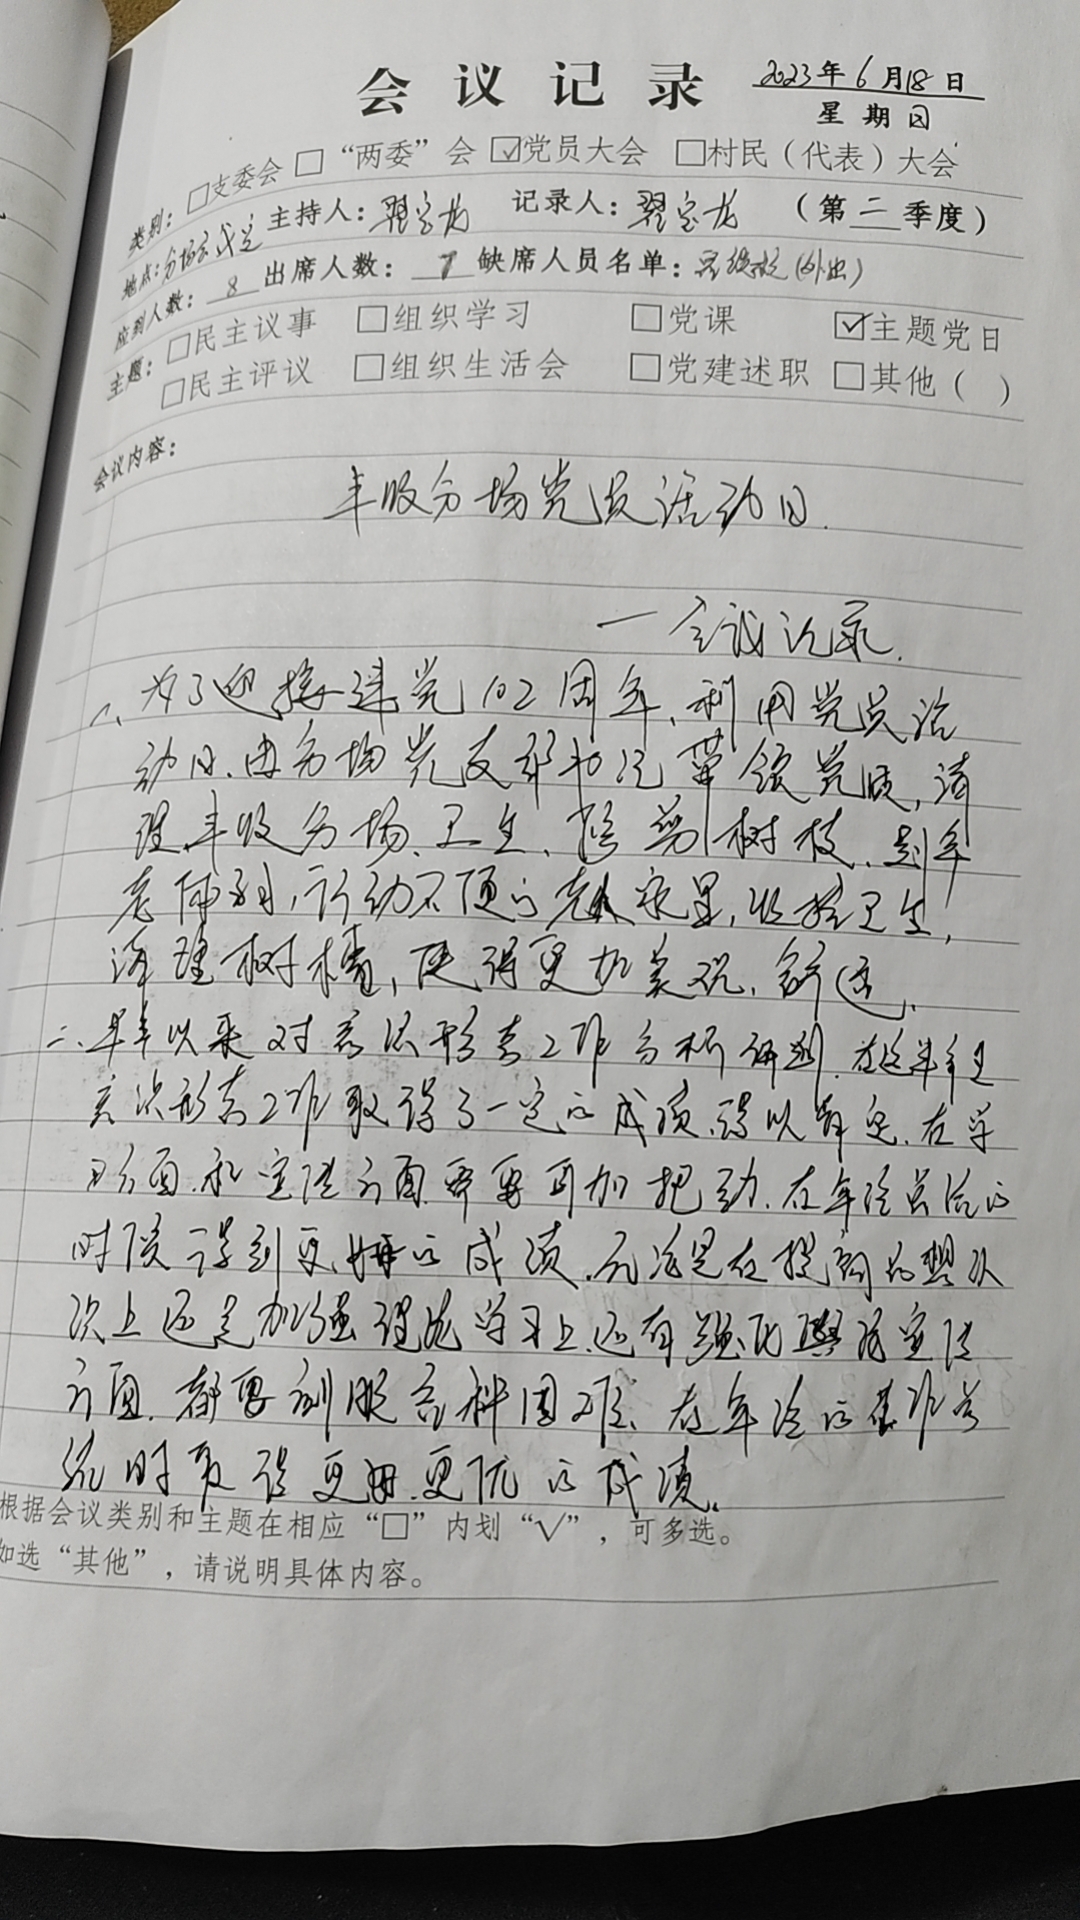 会议记录 2023年6月18日
星期日
类别：□支委会 □“两委”会 ☑党员大会 □村民（代表）大会
地点：分场会议室 主持人：翟宝龙 记录人：翟宝龙 （第二季度）
应到人数：8 出席人数：7 缺席人员名单：（外出）
主题：□民主议事 □组织学习 □党课 ☑主题党日
□民主评议 □组织生活会 □党建述职 □其他（ ）
会议内容：
丰收分场党员活动日.
一会议记录.
一、为了迎接建党102周年、利用党员活
动日、由分场党支部书记带领党员,清
理丰收分场、卫生、修剪树枝、到年
老体弱,行动不便的老人家里,收拾卫生,
清理树墙,使得更加美观、舒适,
二、半年以来对意识形态工作分析研判.在这半年里
意识形态工作取得了一定的成绩.得以肯定.在学
习方面.和宣传方面.要再加把劲.在年终总结的
时候得到更好的成绩.无论是在提高思想认
识上还是加强理论学习上.还有宣传
方面.都要克服各种困难、在年终的工作总
结时取得更好.更优的成绩。
根据会议类别和主题在相应“□”内划“√”，可多选。
如选“其他”，请说明具体内容。